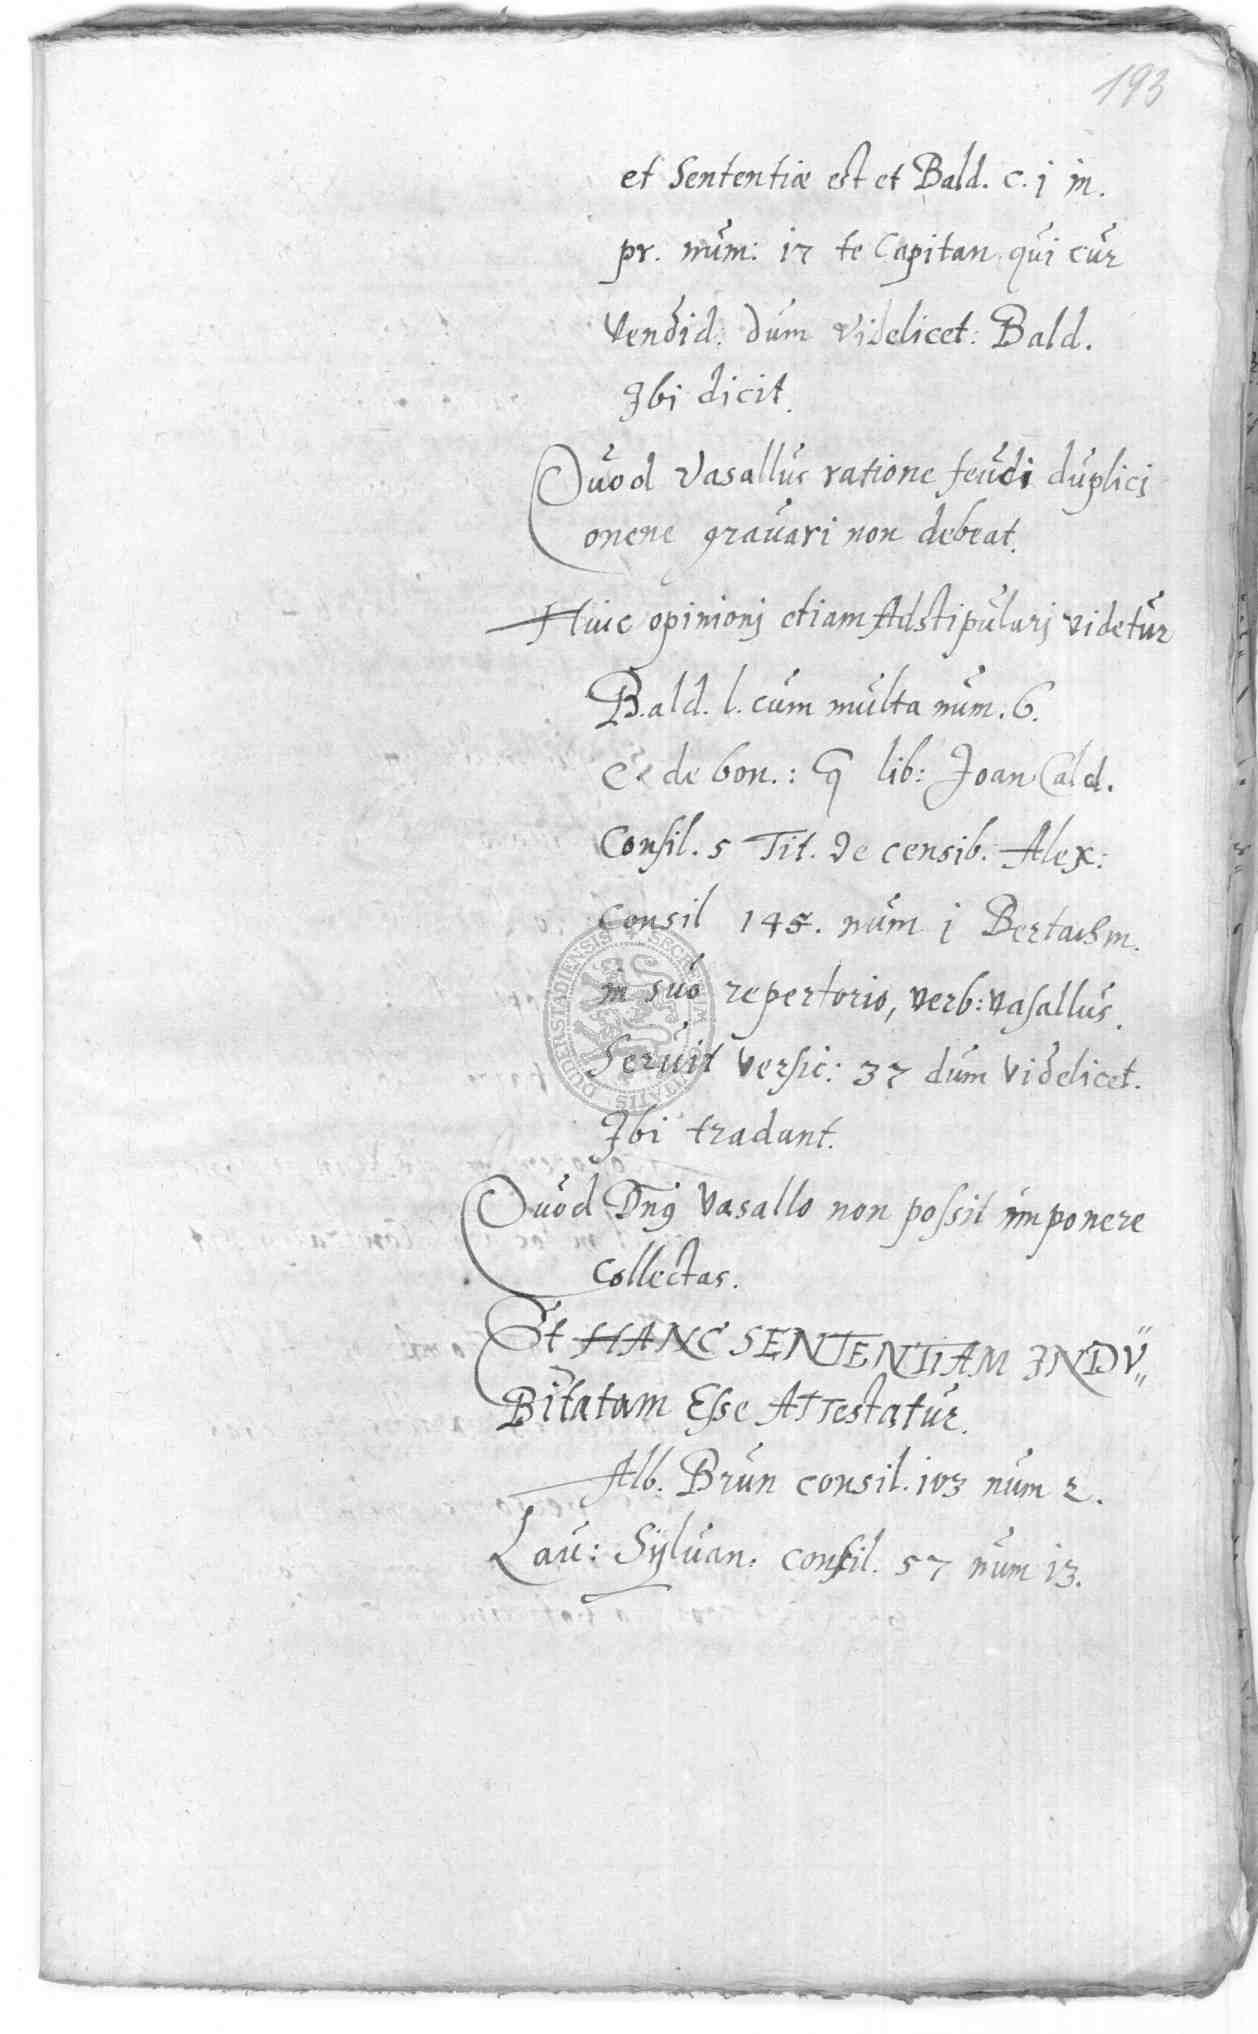 193
et Sententiæ est et Bald. c. j in.
pr. num: 17 te Capitan qui cur
Vendid: dum Videlicet: Bald.
Ibi dicit.
Quod Vasallus ratione feudi duplicj
onene grauari non debeat.
Huic opinionj etiam Adstipularj videtur
Bald. l. cum multa num. 6.
C de bon.: q lib: Joan Cald.
Consil. 5 Tit. de censib. Alex:
Consil 145. num j Bertachm.
in suo repertorio, verb: vasallus.
Seruit Versic: 37 dum Videlicet.
Ibi tradunt.
Quod Dnj Vasallo non possit imponere
Collectas.
Et HANC SENTENTIAM INDV„
Bitatam Esse ATTestatur.
Alb. Brun consil. 103 num 2.
Lau: Sÿluan: consil. 57 num 13.
SECRETUM CIVITATIS DUDERSTADIENSIS